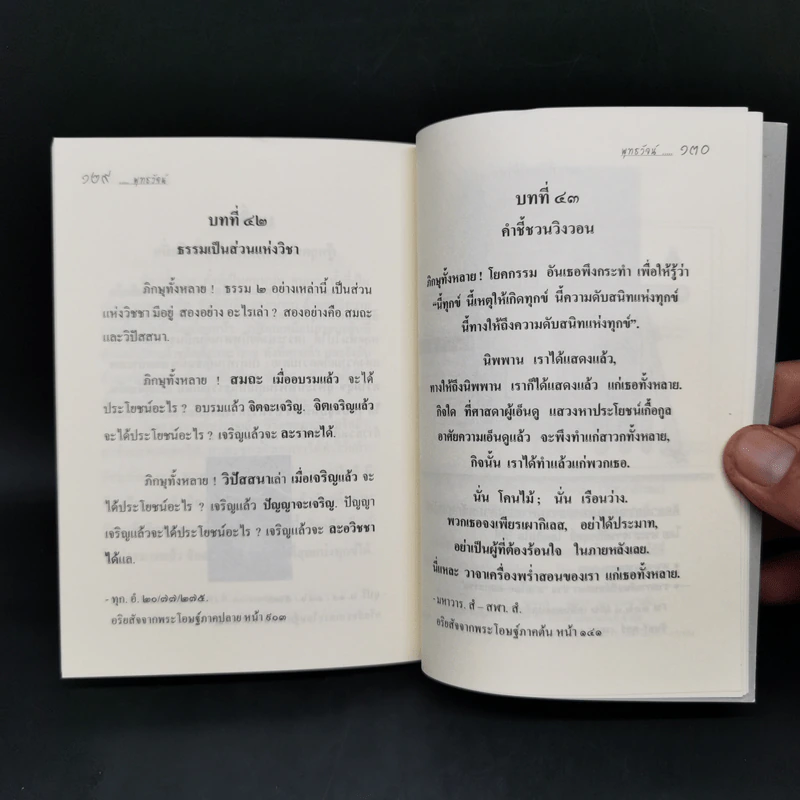 ๑๒๙ __ พุทธวัจน์
บทที่ ๔๒
ธรรมเป็นส่วนแห่งวิชา
ภิกษุทั้งหลาย ! ธรรม ๒ อย่างเหล่านี้ เป็นส่วน
แห่งวิชชา มีอยู่ สองอย่าง อะไรเล่า ? สองอย่างคือ สมถะ
และวิปัสสนา.
ภิกษุทั้งหลาย ! สมถะ เมื่ออบรมแล้ว จะได้
ประโยชน์อะไร ? อบรมแล้ว จิตจะเจริญ. จิตเจริญแล้ว
จะได้ประโยชน์อะไร ? เจริญแล้วจะ ละราคะได้.
ภิกษุทั้งหลาย ! วิปัสสนาเล่า เมื่อเจริญแล้ว จะ
ได้ประโยชน์อะไร ? เจริญแล้ว ปัญญาจะเจริญ. ปัญญา
เจริญแล้วจะได้ประโยชน์อะไร ? เจริญแล้วจะ ละอวิชชา
ได้แล.
- ทุก. อํ. ๒๐/๗๗/๒๗๕.
อริยสัจจากพระโอษฐ์ภาคปลาย หน้า ๙๐๓
พุทธวัจน์ __ ๑๓๐
บทที่ ๔๓
คำชี้ชวนวิงวอน
ภิกษุทั้งหลาย ! โยคกรรม อันเธอพึงกระทำ เพื่อให้รู้ว่า
“นี้ทุกข์ นี้เหตุให้เกิดทุกข์ นี้ความดับสนิทแห่งทุกข์
นี้ทางให้ถึงความดับสนิทแห่งทุกข์”.
นิพพาน เราได้แสดงแล้ว,
ทางให้ถึงนิพพาน เราก็ได้แสดงแล้ว แก่เธอทั้งหลาย.
กิจใด ที่ศาสดาผู้เอ็นดู แสวงหาประโยชน์เกื้อกูล
อาศัยความเอ็นดูแล้ว จะพึงทำแก่สาวกทั้งหลาย,
กิจนั้น เราได้ทำแล้วแก่พวกเธอ.
นั่น โคนไม้ ; นั่น เรือนว่าง.
พวกเธอจงเพียรเผากิเลส, อย่าได้ประมาท,
อย่าเป็นผู้ที่ต้องร้อนใจ ในภายหลังเลย.
นี่แหละ วาจาเครื่องพร่ำสอนของเรา แก่เธอทั้งหลาย.
- มหาวาร. สํ – สฬา. สํ.
อริยสัจจากพระโอษฐ์ภาคต้น หน้า ๑๔๑